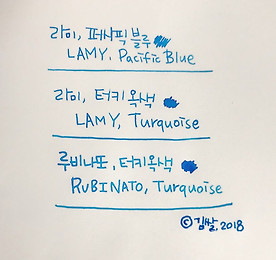 라미, 퍼시픽 블루
LAMY, Pacific Blue
라미, 터키옥색
LAMY, Turquoise
루비나또, 터키옥색
RUBINATO, Turquoise
©김쌀. 2018